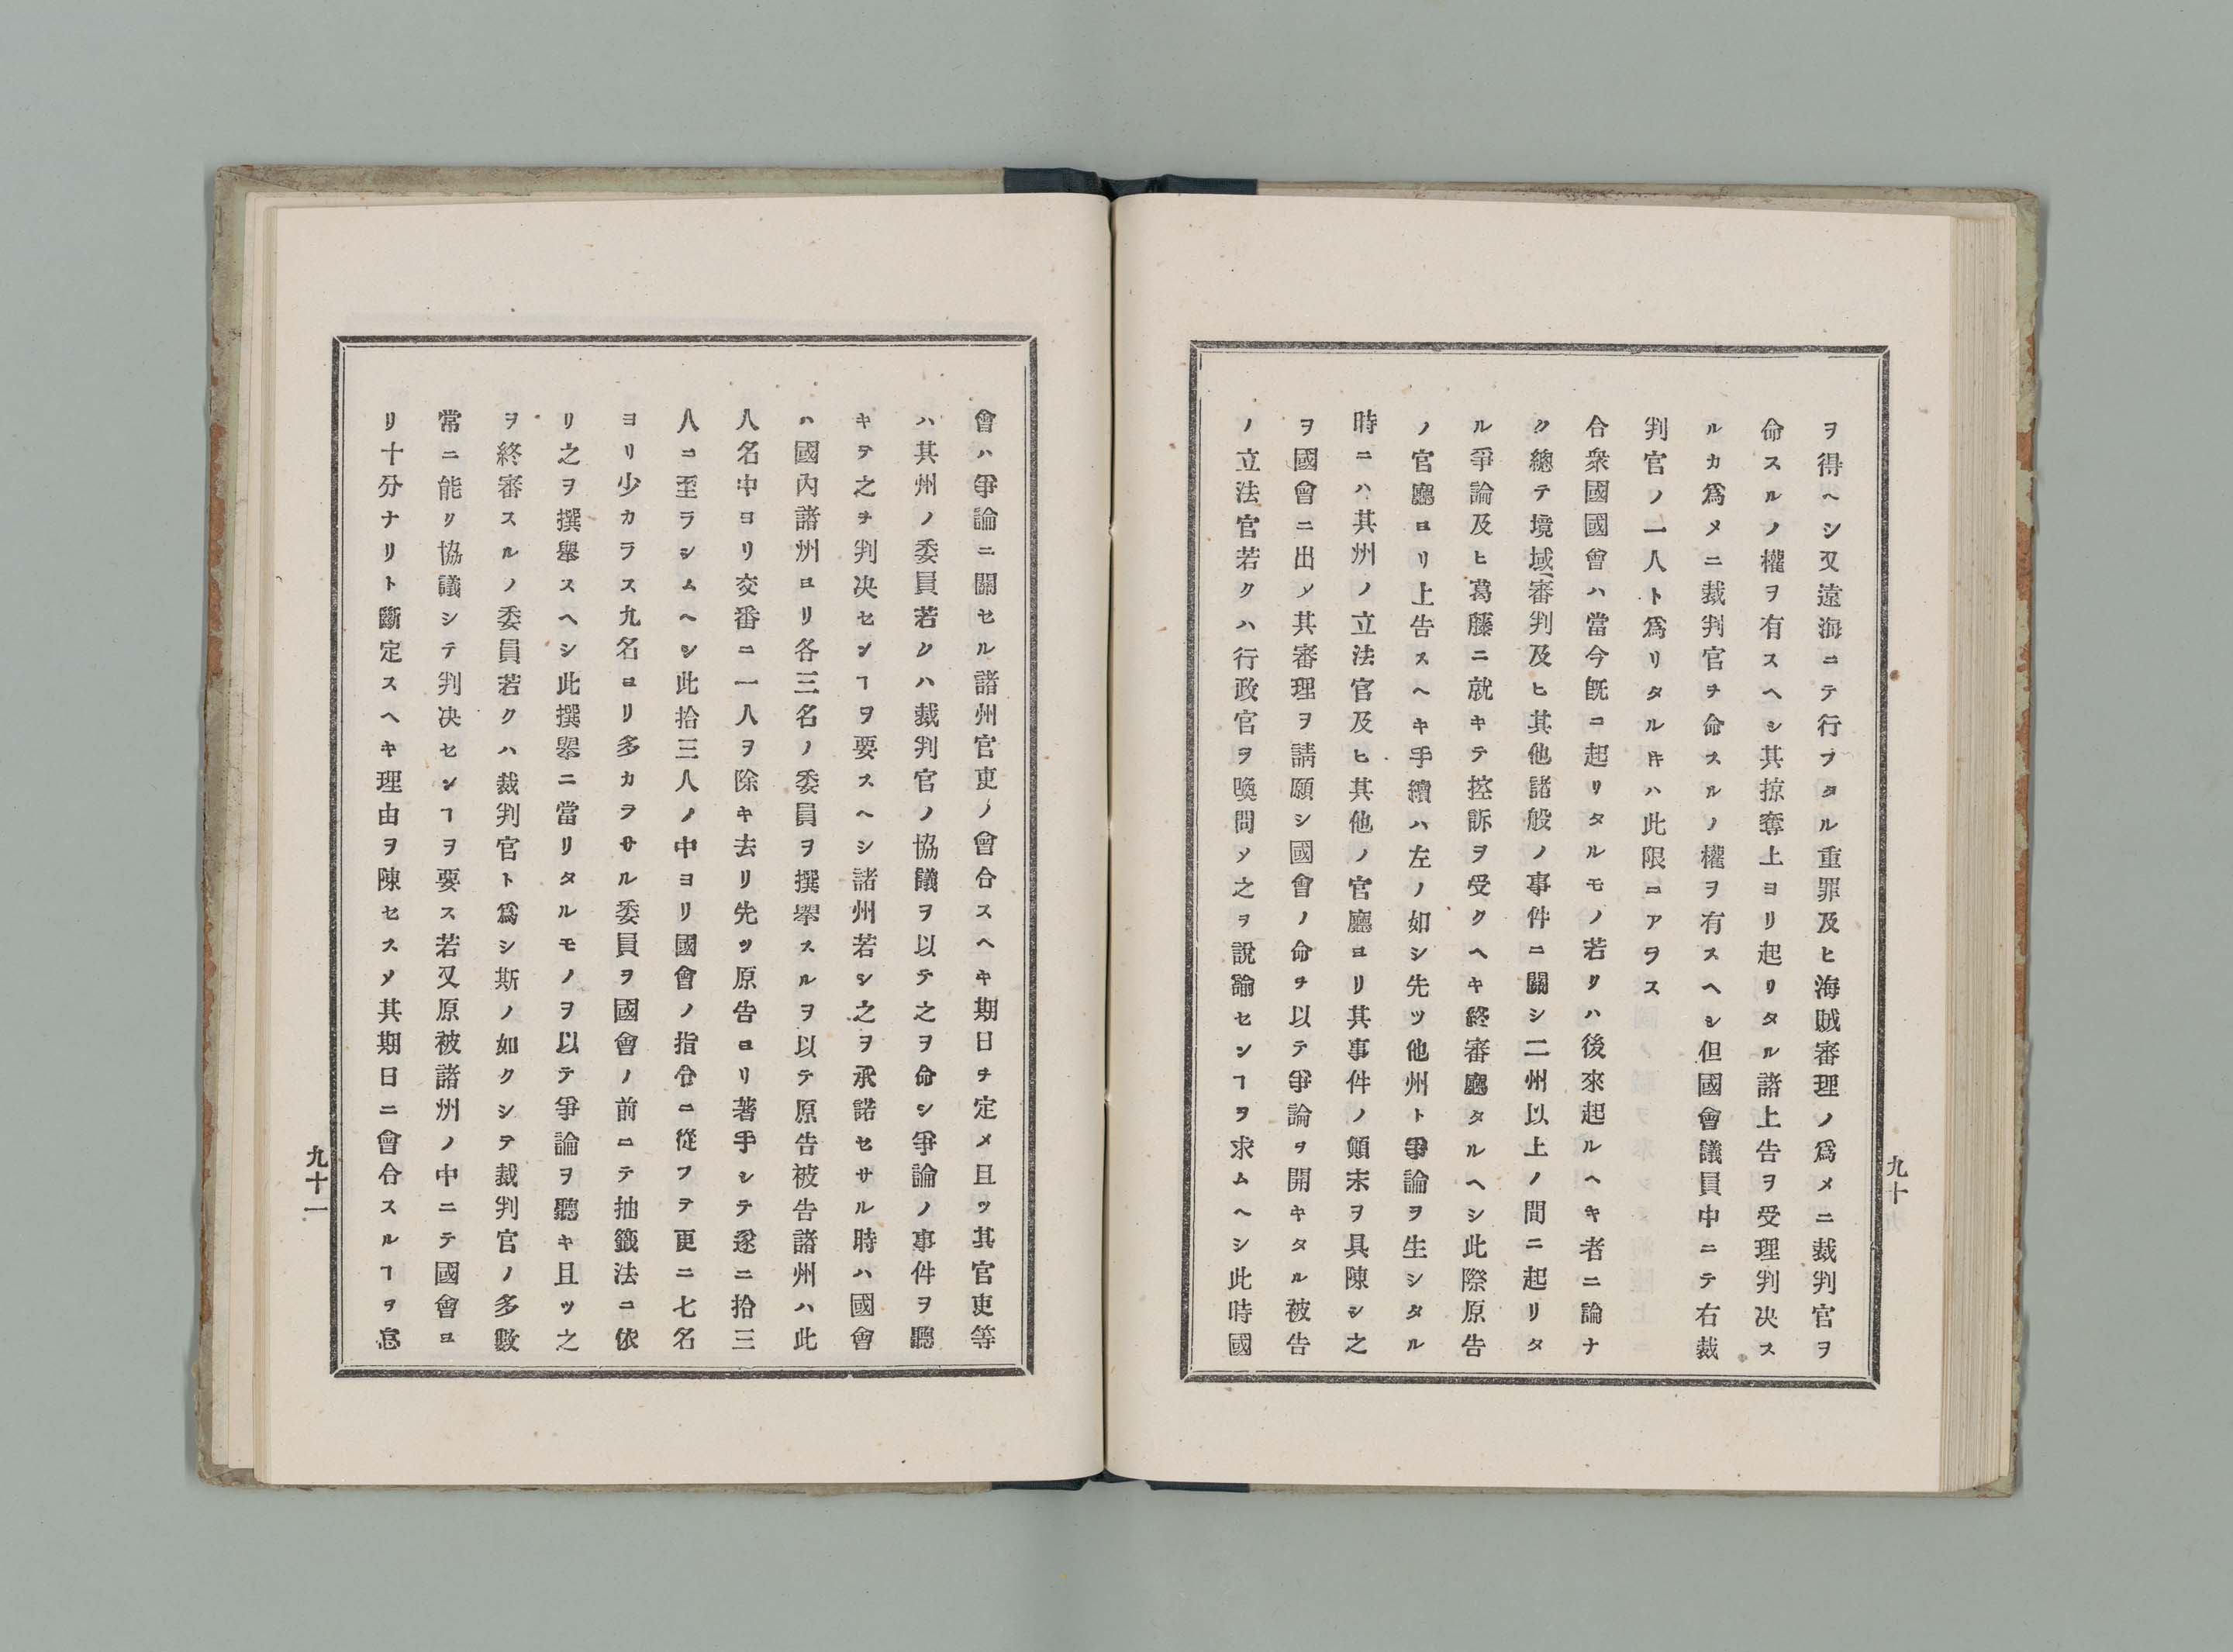 ヲ得ヘシ又遠海ニテ行フタル重罪及ヒ海賊審理ノ爲メニ裁判官ヲ
命スルノ權ヲ有スヘシ其掠奪上ヨリ起リタル諸上告ヲ受理判决ス
ルカ爲メニ裁判官ヲ命スルノ權ヲ有スヘシ但國會議員中ニテ右裁
判官ノ一人ト爲リタルキハ此限ニアラス
合衆國國會ハ當今既ニ起リタルモノ若クハ後來起ルヘキ者ニ論ナ
ク總テ境域審判及ヒ其他諸般ノ事件ニ關シ二州以上ノ間ニ起リタ
ル爭論及ヒ葛藤ニ就キテ控訴ヲ受クヘキ終審廳タルヘシ此際原告
ノ官廳ヨリ上告スヘキ手續ハ左ノ如シ先ツ他州ト爭論ヲ生シタル
時ニハ其州ノ立法官及ヒ其他ノ官廳ヨリ其事件ノ顛末ヲ具陳シ之
ヲ國會ニ出シ其審理ヲ請願シ國會ノ命ヲ以テ爭論ヲ開キタル被告
ノ立法官若クハ行政官ヲ喚問シ之ヲ說諭センヿヲ求ムヘシ此時國
九十
會ハ爭論ニ關セル諸州官吏ノ會合スヘキ期日ヲ定メ且ツ其官吏等
ハ其州ノ委員若クハ裁判官ノ協議ヲ以テ之ヲ命シ爭論ノ事件ヲ聽
キテ之ヲ判决センヿヲ要スヘシ諸州若シ之ヲ承諾セサル時ハ國會
ハ國內諸州ヨリ各三名ノ委員ヲ撰擧スルヲ以テ原告被告諸州ハ此
人名中ヨリ交番ニ一人ヲ除キ去リ先ツ原告ヨリ著手シテ遂ニ拾三
人ニ至ラシムヘシ此拾三人ノ中ヨリ國會ノ指令ニ從フテ更ニ七名
ヨリ少カラス九名ヨリ多カラサル委員ヲ國會ノ前ニテ抽籤法ニ依
リ之ヲ撰擧スヘシ此撰擧ニ當リタルモノヲ以テ爭論ヲ聽キ且ツ之
ヲ終審スルノ委員若クハ裁判官ト爲シ斯ノ如クシテ裁判官ノ多數
常ニ能ク協議シテ判决センヿヲ要ス若又原被諸州ノ中ニテ國會ヨ
リ十分ナリト斷定スヘキ理由ヲ陳セスシテ其期日ニ會合スルヿヲ怠
九十一